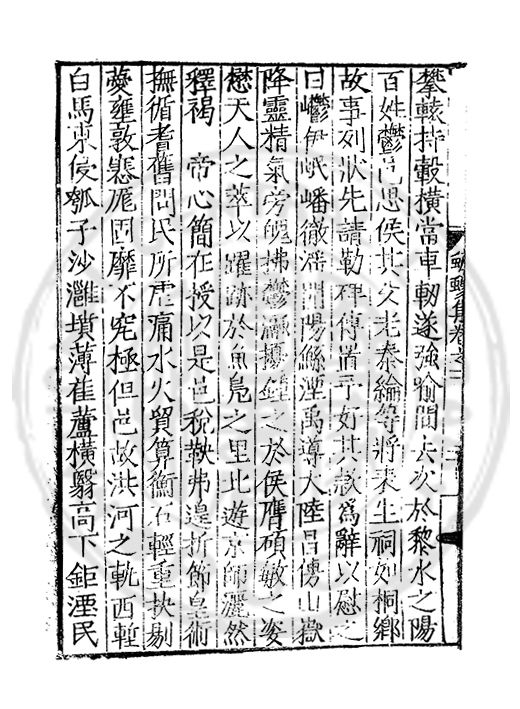 攀轅持轂橫當車軔遂強喻間去次於黎水之陽
百姓鬱邑思侯其父老秦綸等將表生祠如桐鄉
故事列狀先請勒碑傳嵩予好其敖爲辭以慰之
曰巘伊岷嶓徹潘開陽鯀湮禹導大陸昌傳山嶽
降靈精氣旁魄拂鬱瀜攘鍾之於侯膺碩敏之姿
懋天人之萃以躍跡於魚鳧之里北遊京師灑然
釋褐 帝心簡在授以是邑稅鞅弗遑折節皇術
撫循耆舊問民所虐痛水火貿算衡石輕重抉剔
奠雍敦悲厖固靡不究極但邑故洪河之軌西塹
白馬東侵瓠子沙灘墳薄萑蘆橫翳高下鉅湮民
集卷之二